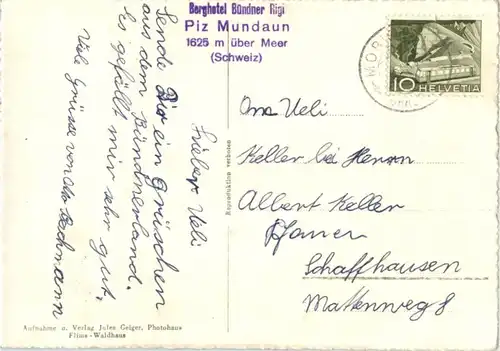 Berghotel Bündner Rigi
Piz Mundaun
1625 m über Meer
(Schweiz)
10 HELVETIA
Lieber Ueli
Sende Dir ein Grüschen
aus dem Bündnerland.
es gefällt mir sehr gut.
Viele Grüsse von
Reproduktion verboten
Ueli
Keller bei Herrn
Albert Keller
Schaffhausen
Mattenweg 8
Aufnahme u. Verlag Jules Geiger, Photohaus
Flims-Waldhaus